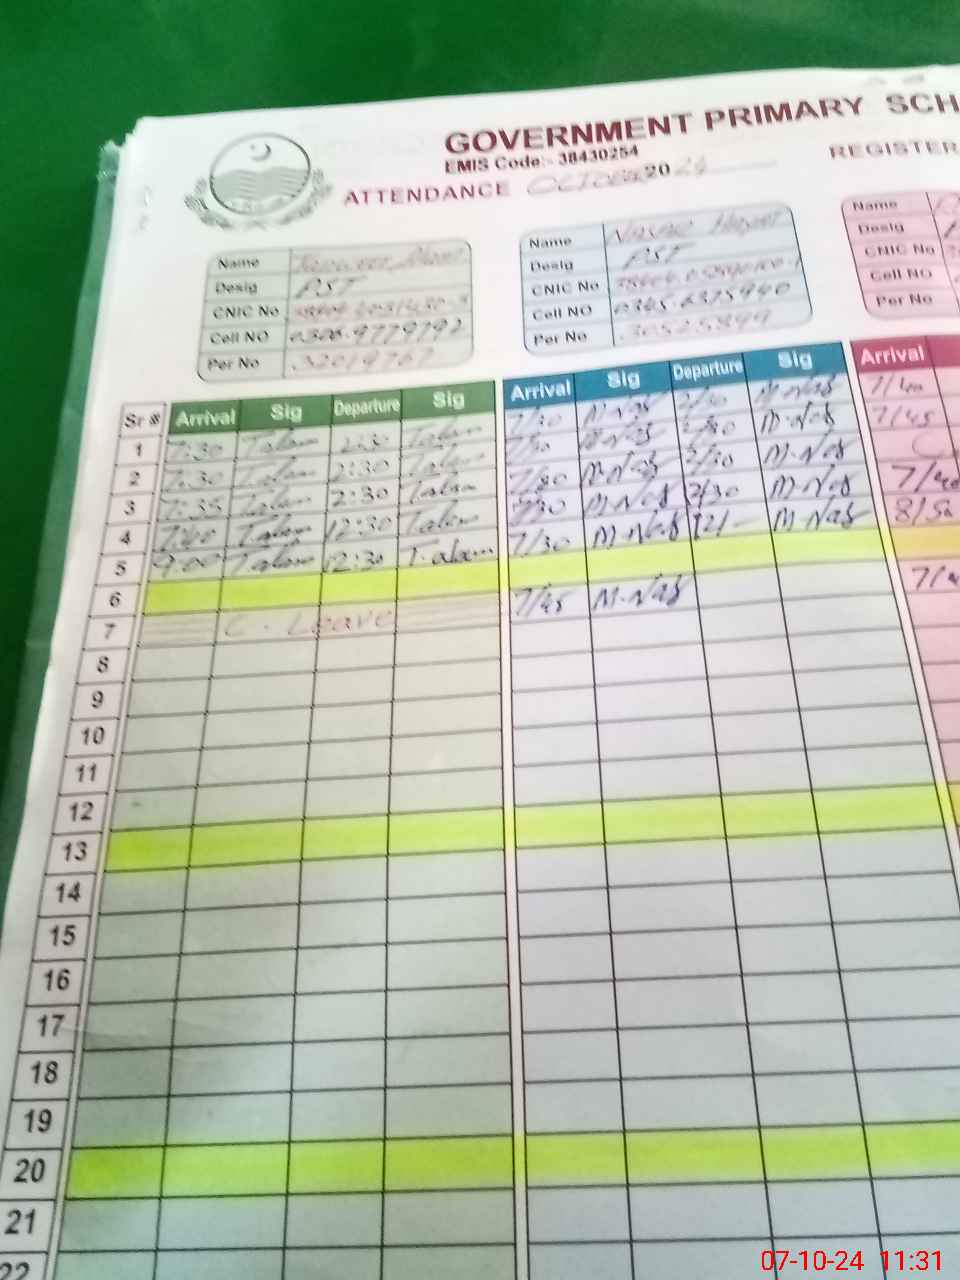 GOVERNMENT PRIMARY SCH
EMIS Code:- 38430254
REGISTER
ATTENDANCE October 2024
Name
Desig PST
CNIC No
Cell NO 0306.9779792
Per No 32019767
Name
Desig PST
CNIC No
Cell NO 0345.6375940
Per No 30525899
Name
Desig
CNIC No
Cell NO
Per No
Sr # Arrival Sig Departure Sig Arrival Sig Departure Sig Arrival
1 7:30 Talam 2:30 Talam 7/30 M.Nas 2/30 M.Nas 7/40
2 7:30 Talam 2:30 Talam 7/30 M.Nas 2/30 M.Nas 7/45
3 7:35 Talam 2:30 Talam 7/30 M.Nas 2/30 M.Nas
4 7:40 Talam 12:30 Talam 7/30 M.Nas 2/30 M.Nas 7/40
5 9:00 Talam 12:30 Talam 7/30 M.Nas 12/- M.Nas 8/50
6
7 C. Leave 7/45 M.Nas
8
9
10
11
12
13
14
15
16
17
18
19
20
21
22
07-10-24 11:31